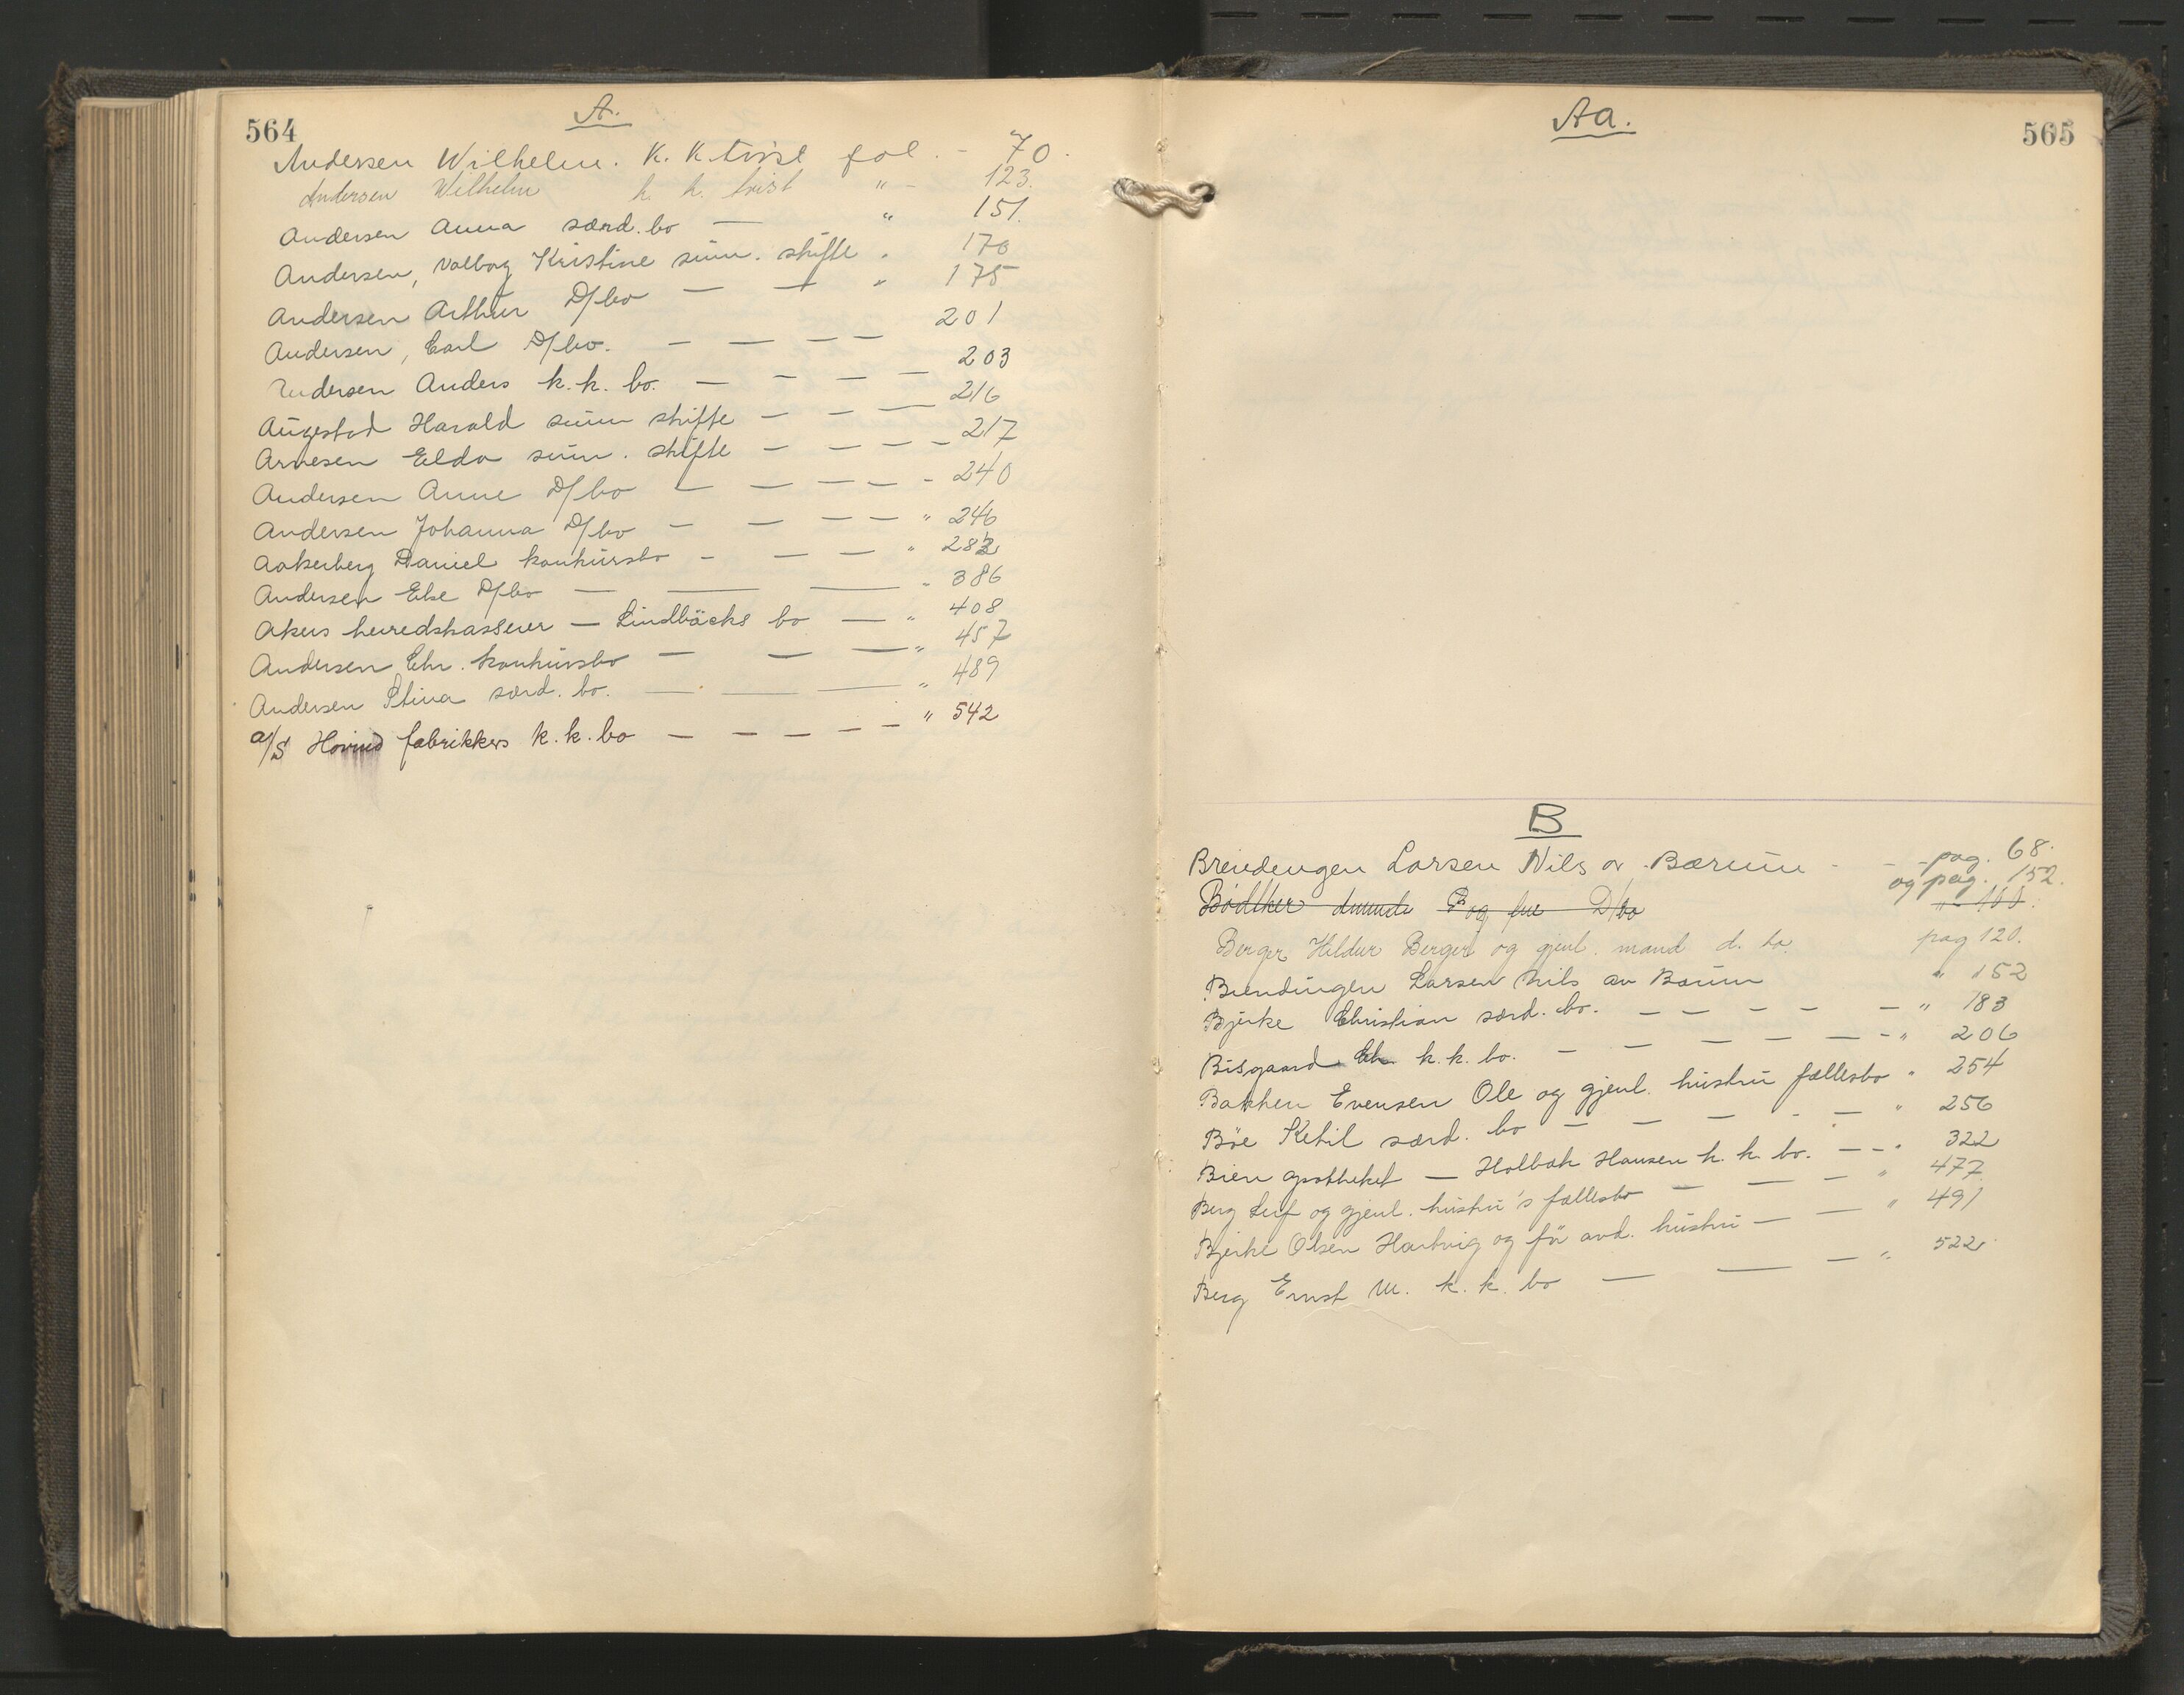 564
A.
Andersen Wilhelm. K. K. tvist fol. - 70.
Andersen Wilhelm k. k. tvist " - 123.
Andersen Anna særd. bo — " 151.
Andersen, Valborg Kristine sum. skifte " 170
Andersen Arthur D/bo — — " 175
Andersen, Carl D/bo. — — — — 201
Andersen Anders k. k. bo. — — — — 203
Augestad Harald sum skifte — — — 216
Arnesen Elda sum. skifte — — — — 217
Andersen Anne D/bo — — — — - 240
Andersen Johanna D/bo — — — — " 246
Aakerberg Daniel konkursbo - — — " 282
Andersen Else D/bo — — — " 386
Akers herredskasserer — Lindbäcks bo — " 408
Andersen Chr. konkursbo — — — " 457
Andersen Stina særd. bo. — — — " 489
A/S Hovind fabrikkers k. k. bo — — — — — " 542
565
Aa.
B
Brendengen Larsen Nils av Bærum - - - pag. 68.
og pag. 152.
Bødtker P og frue D/bo " - 100.
Berger Hildur Berger og gjenl. mand d. bo. pag 120.
Brendingen Larsen Nils av Bærum " 152
Bjerke Christian særd. bo. — — — — — " 183
Bisgaard Ch. k. k. bo. — — — — — - " 206
Bakken Evensen Ole og gjenl. hustru fællesbo " 254
Böe Ketil særd. bo — — — - — " 256
Bien apotheket — Holbæk Hansen k. k. bo. — — " 322
Berg Leif og gjenl. hustru's fællesbo — — — " 477.
Bjerke Olsen Hartvig og før avd. hustru — — " 491
Berg Ernst M. k. k. bo — — — " 522.